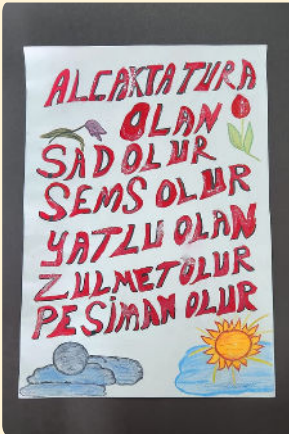 ALCAKTA TURA
OLAN
SAD OLUR
SEMS OLUR
YATLU OLAN
ZULMET OLUR
PESIMAN OLUR